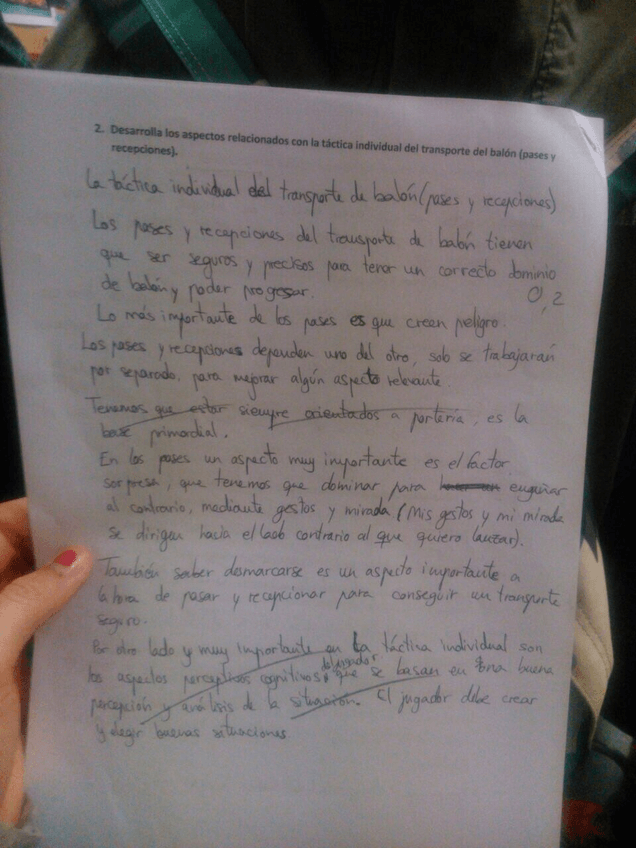 2. Desarrolla los aspectos relacionados con la táctica individual del transporte del balón (pases y
recepciones).
La táctica individual del transporte de balón (pases y recepciones)
Los pases y recepciones del transporte de balón tienen
que ser seguros y precisos para tener un correcto dominio
de balón y poder progresar.
0,2
Lo más importante de los pases es que creen peligro.
Los pases y recepciones dependen uno del otro, solo se trabajarán
por separado, para mejorar algún aspecto relevante.
Tenemos que estar siempre orientados a portería, es la
base primordial.
En los pases un aspecto muy importante es el factor
sorpresa, que tenemos que dominar para engañar
al contrario, mediante gestos y mirada (Mis gestos y mi mirada
se dirigen hacia el lado contrario al que quiero lanzar).
También saber desmarcarse es un aspecto importante a
la hora de pasar y recepcionar para conseguir un transporte
seguro.
Por otro lado y muy importante en la táctica individual son
los aspectos perceptivos cognitivos del jugador que se basan en una buena
percepción y análisis de la situación. El jugador debe crear
y elegir buenas situaciones